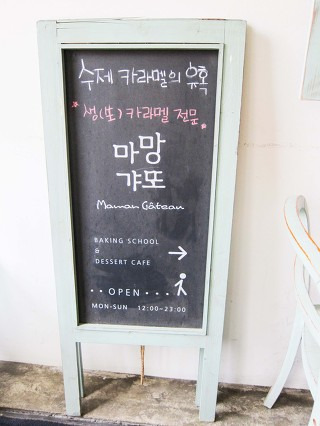 수제 카라멜의 유혹
생(生) 카라멜 전문
마망
갸또
Maman Gâteau
BAKING SCHOOL
&
DESSERT CAFE
OPEN
MON-SUN 12:00~23:00